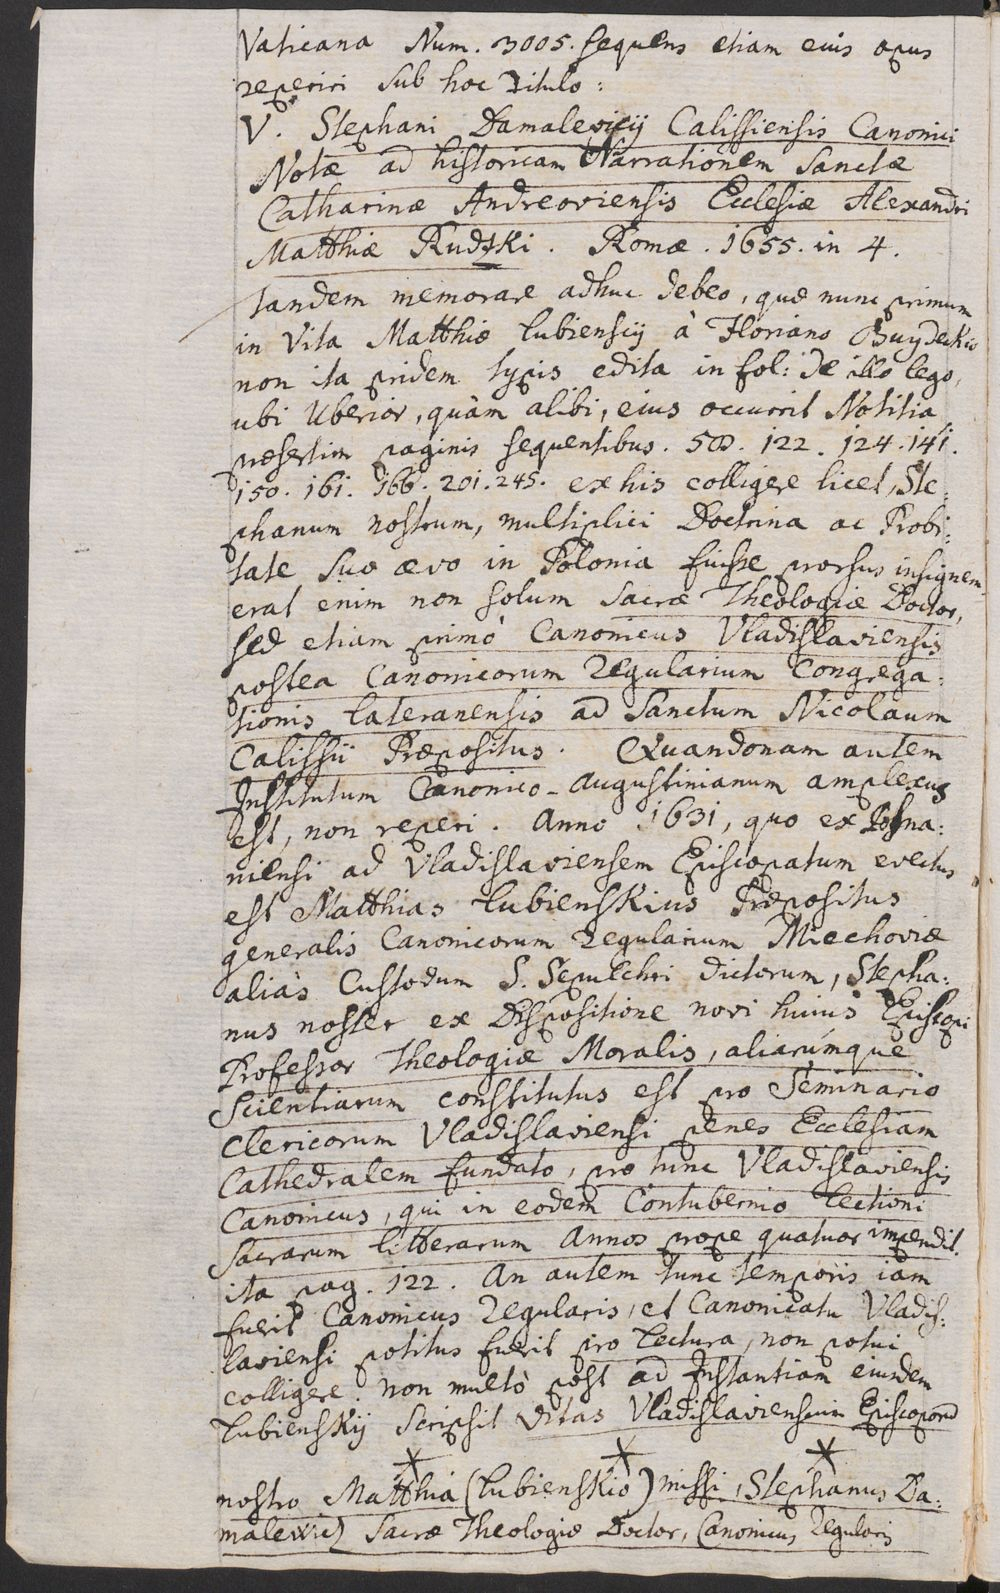 Vaticana Num. 3005. sequens etiam eius opus
reperiri sub hoc titulo:
V. Stephani Damalevicij Calissiensis Canonici
Notæ ad historicam Narrationem Sanctæ
Catharinæ Andreoviensis Ecclesiæ Alexandri
Matthiæ Rudzki. Romæ. 1655. in 4.
tandem memorare adhuc debeo, quæ nunc primum
in Vita Matthiæ Lubienscij à Floriano Buydeckio
non ita pridem typis edita in fol: de illo lego,
ubi Uberior, quàm alibi, eius occurrit Notitia
præsertim paginis sequentibus. 122. 124. 141.
150. 161. 166. 201. 245. ex his colligere licet, Ste:
phanum nostrum, multiplici Doctrina ac Probi:
tate suo ævo in Polonia fuisse prorsus insignem
erat enim non solum Sacræ Theologiæ Doctor,
sed etiam primò Canonicus Vladislaviensis
postea Canonicorum Regularium Congrega:
tionis Lateranensis ad Sanctum Nicolaum
Calissii Præpositus. Quandonam autem
Institutum Canonico-Augustinianum amplexus
est, non reperi. Anno 1631, quo ex Posna:
niensi ad Vladislaviensem Episcopatum evectus
est Matthias Lubienskius Præpositus
generalis Canonicorum Regularium Miechoviæ
aliàs Custodum S. Sepulchri dictorum, Stepha:
nus noster ex Dispositione novi huius Episcopi
Professor Theologiæ Moralis, aliarúmque
Scientiarum constitutus est pro Seminario
Clericorum Vladislaviensi penes Ecclesiam
Cathedralem fundato, pro tunc Vladislaviensis
Canonicus, qui in eodem Contubernio Lectioni
Sacrarum Litterarum Annos prope quatuor impendit.
ita pag. 122. An autem tunc temporis iam
fuerit Canonicus Regularis, et Canonicatu Vladis:
laviensi potitus fuerit pro Lectura, non potui
colligere. non multò post ad Instantiam eiusdem
Lubienskij scripsit Vitas Vladislaviensium Episcoporum
nostro Matthia (Lubienskio) missi, Stephanus Da:
malewicz Sacræ Theologiæ Doctor, Canonicus Regularis